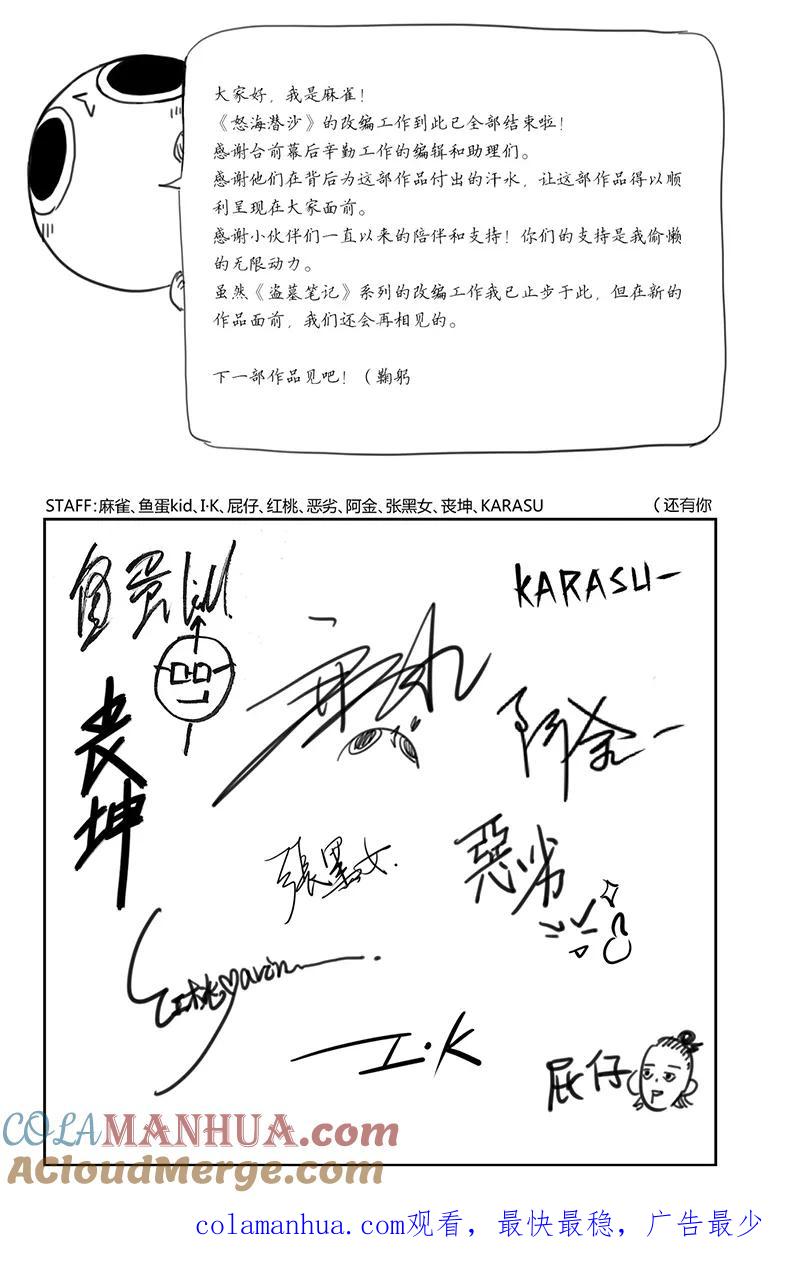 大家好，我是麻雀！
《怒海潜沙》的改编工作到此已全部结束啦！
感谢台前幕后辛勤工作的编辑和助理们。
感谢他们在背后为这部作品付出的汗水，让这部作品得以顺
利呈现在大家面前。
感谢小伙伴们一直以来的陪伴和支持！你们的支持是我偷懒
的无限动力。
虽然《盗墓笔记》系列的改编工作我已止步于此，但在新的
作品面前，我们还会再相见的。
下一部作品见吧！（鞠躬
STAFF：麻雀、鱼蛋kid、I·K、屁仔、红桃、恶劣、阿金、张黑女、丧坤、KARASU （还有你
鱼蛋kid
KARASU
丧坤
阿金
張黑女.
惡劣
红桃
I·K
屁仔
COLAMANHUA.com
ACloudMerge.com
colamanhua.com观看，最快最稳，广告最少